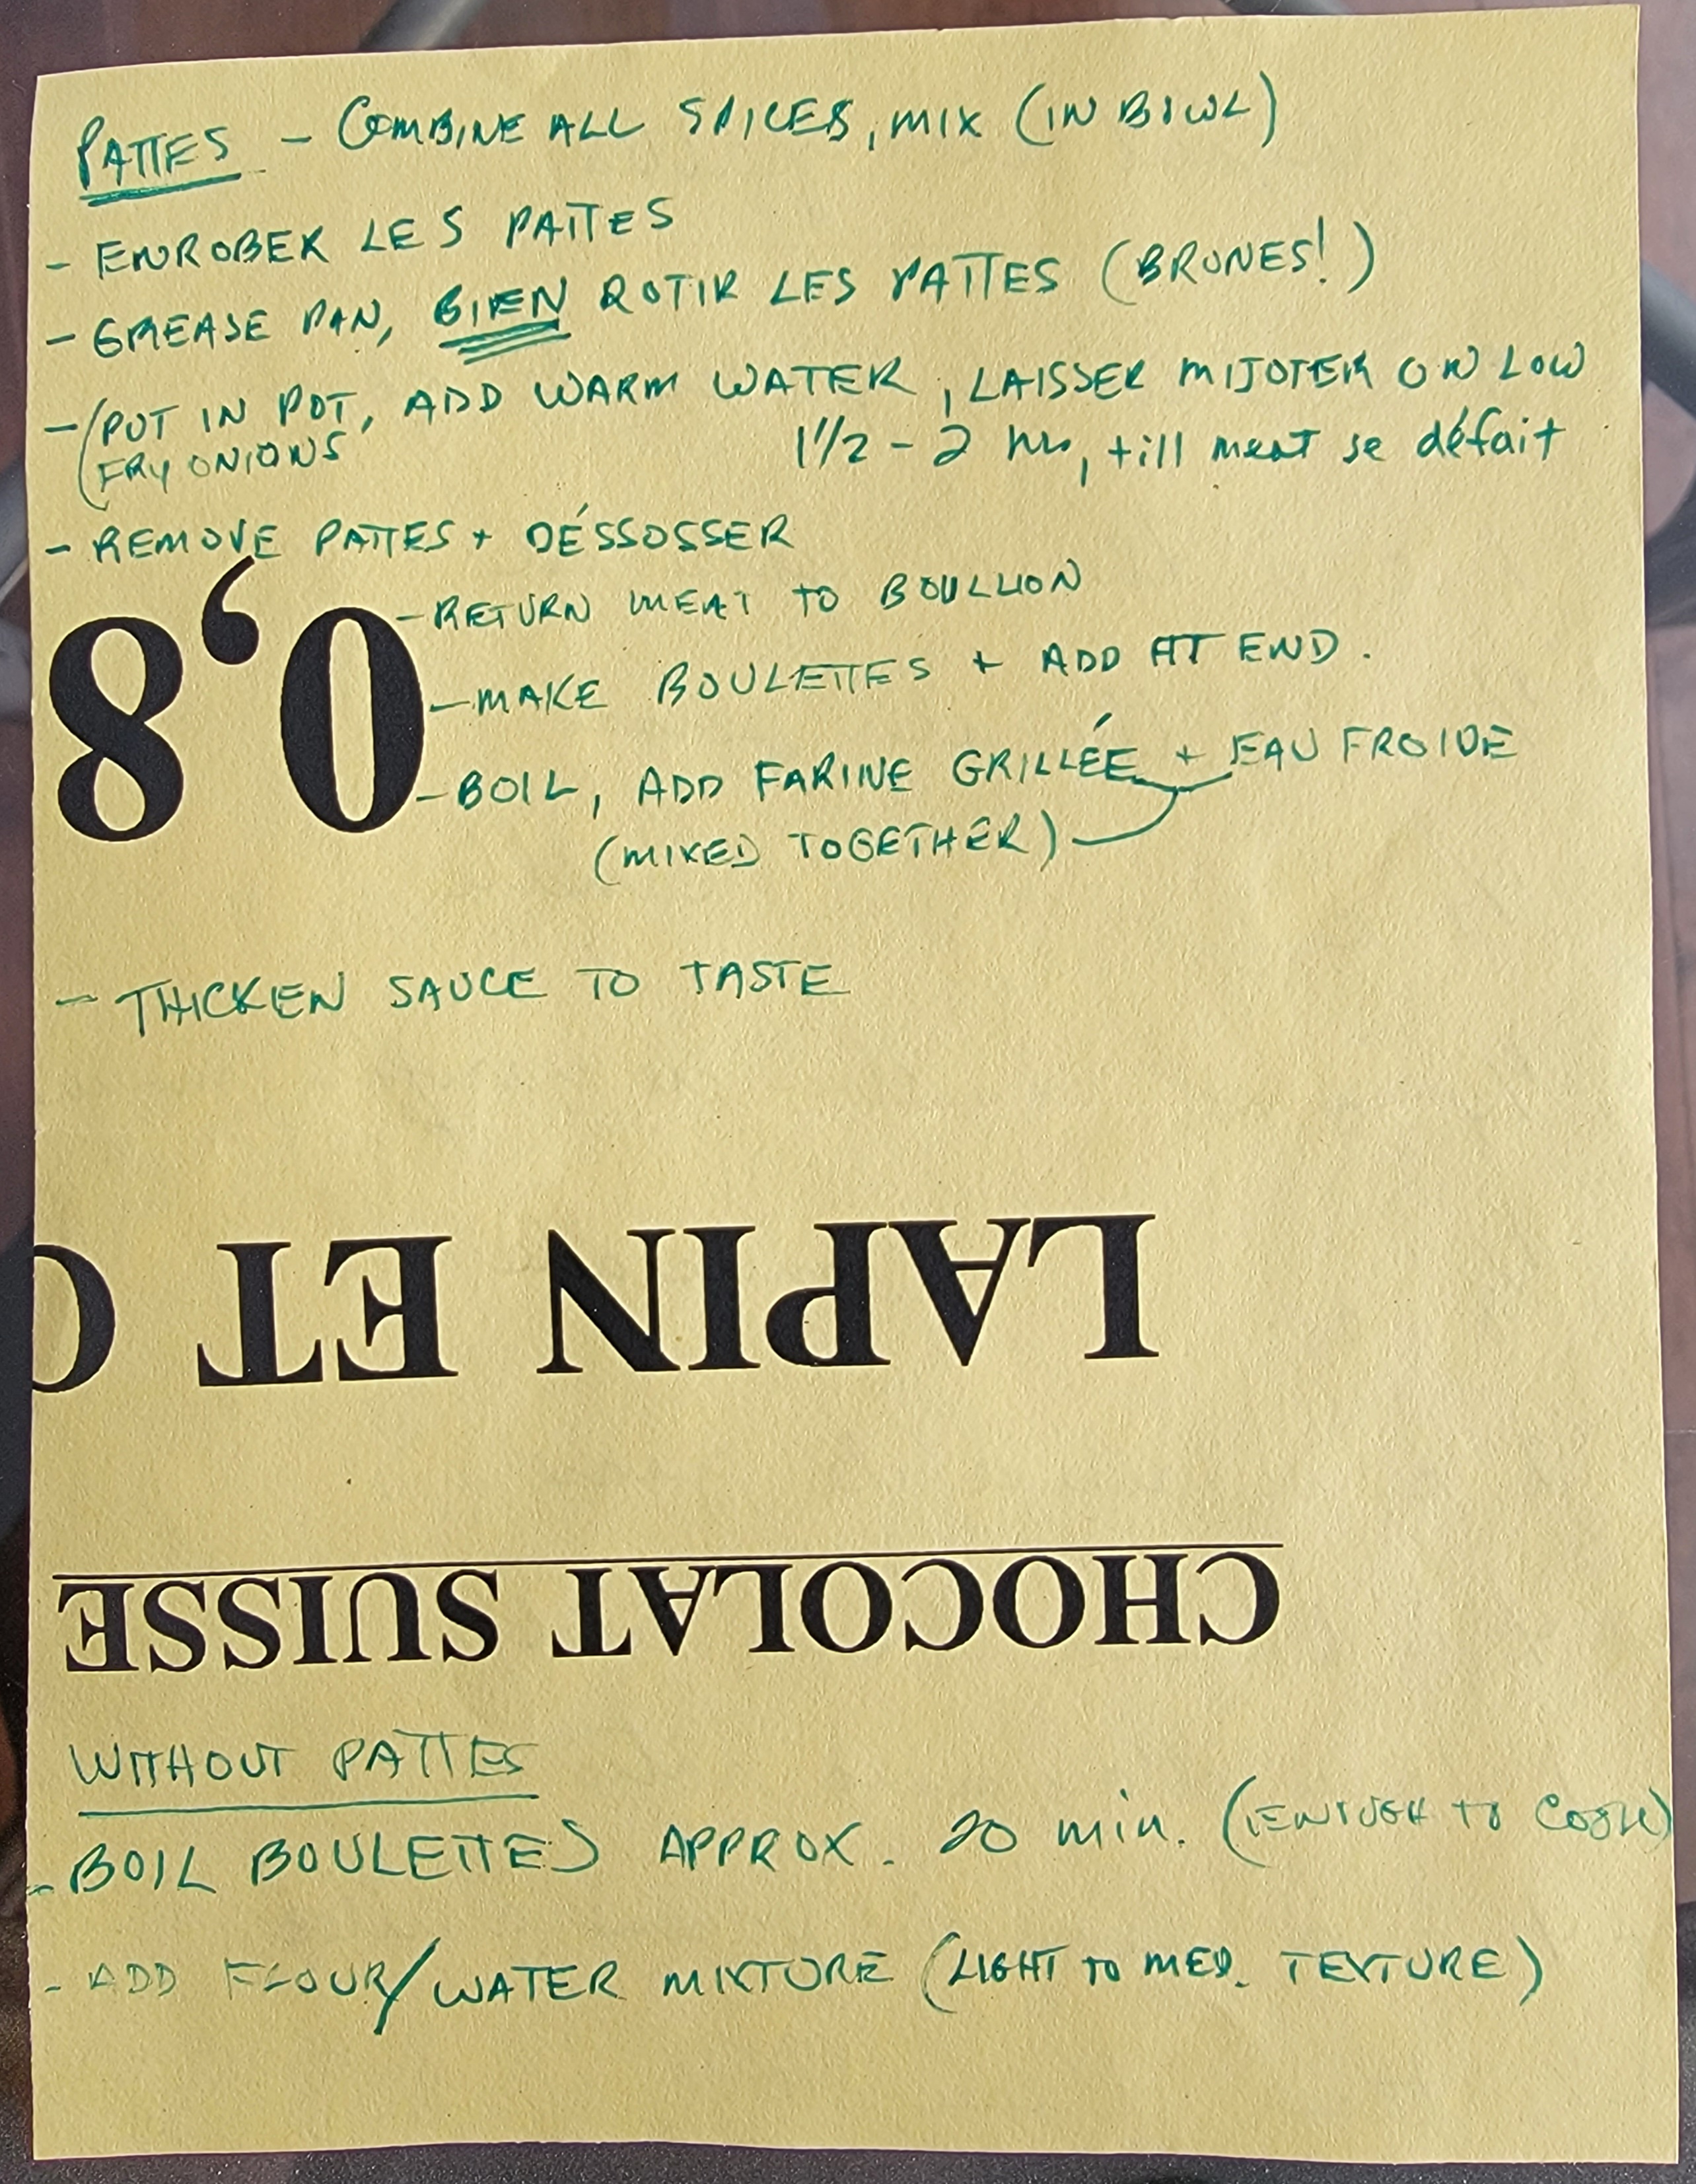 PATTES - COMBINE ALL SPICES, MIX (IN BOWL)
- ENROBER LES PATTES
- GREASE PAN, BIEN ROTIR LES PATTES (BRUNES!)
- (PUT IN POT, ADD WARM WATER, LAISSER MIJOTER ON LOW
FRY ONIONS
1 1/2 - 2 hrs, till meat se défait
- REMOVE PATTES + DÉSSOSSER
- RETURN MEAT TO BOULLION
- MAKE BOULETTES + ADD AT END.
- BOIL, ADD FARINE GRILLÉE + EAU FROIDE
(MIXED TOGETHER)
0,8
- THICKEN SAUCE TO TASTE
LAPIN ET C
CHOCOLAT SUISSE
WITHOUT PATTES
- BOIL BOULETTES APPROX. 20 min. (ENOUGH TO COOK)
- ADD FLOUR/WATER MIXTURE (LIGHT TO MED. TEXTURE)